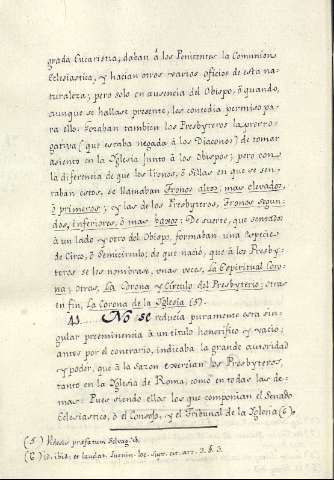 grada Eucaristia, daban á los Penitentes la Comunion
Eclesiastica, y hacian otros varios oficios de esta na-
turaleza; pero solo en ausencia del Obispo, ó quando,
aunque se hallase presente, les concedia permiso pa-
ra ello. Gozaban tambien los Presbyteros la prerro-
gativa (que estaba negada á los Diaconos) de tomar
asiento en la Iglesia junto á los Obispos; pero con
la diferencia de que los Tronos, ó Sillas en que se sen-
taban estos, se llamaban Tronos altos, mas elevados,
ó primeros; y las de los Presbyteros, Tronos segun-
dos, inferiores, ó mas baxos: De suerte, que sentados
á un lado y otro del Obispo, formaban una especie
de Circo, ó Semicirculo; de que nació, que á los Presby-
teros se les nombrase, unas veces, La Espiritual Coro-
na; otras, La Corona y Circulo del Presbyterio; otras
en fin, La Corona de la Iglesia (5).
41. No se reducia puramente esta sin-
gular preeminencia á un titulo honorifico y vacio;
antes por el contrario, indicaba la grande autoridad
y poder, que á la sazon exercian los Presbyteros,
tanto en la Iglesia de Roma, como en todas las de-
mas: Pues siendo ellas los que componian el Senado
Eclesiastico, ó el Consejo, y el Tribunal de la Iglesia (6).
(5) Videsis præfatum Selvag. ib.
(6) Id. ibid. et laudat. Juenin. loc. sup. cit. art. 2. §. 3.